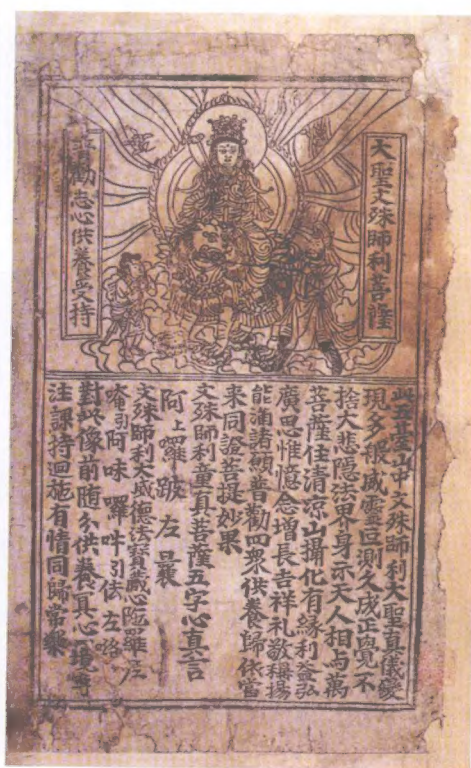 大聖文殊師利菩薩
普勸志心供養受持
此五臺山中文殊師利大聖真儀變
現多般威靈叵測久成正覺不
捨大悲隱法界身示天人相与萬
菩薩住清凉山攝化有緣利益弘
廣思惟憶念增長吉祥礼敬稱揚
能滿諸願普勸四衆供養歸依當
来同證菩提妙果
文殊師利童真菩薩五字心真言
阿上囉跛左曩
文殊師利大威德法寶藏心陁羅尼
唵引阿味囉吽引佉左咯
對此像前随分供養冥心一境專
注課持迴施有情同歸常樂